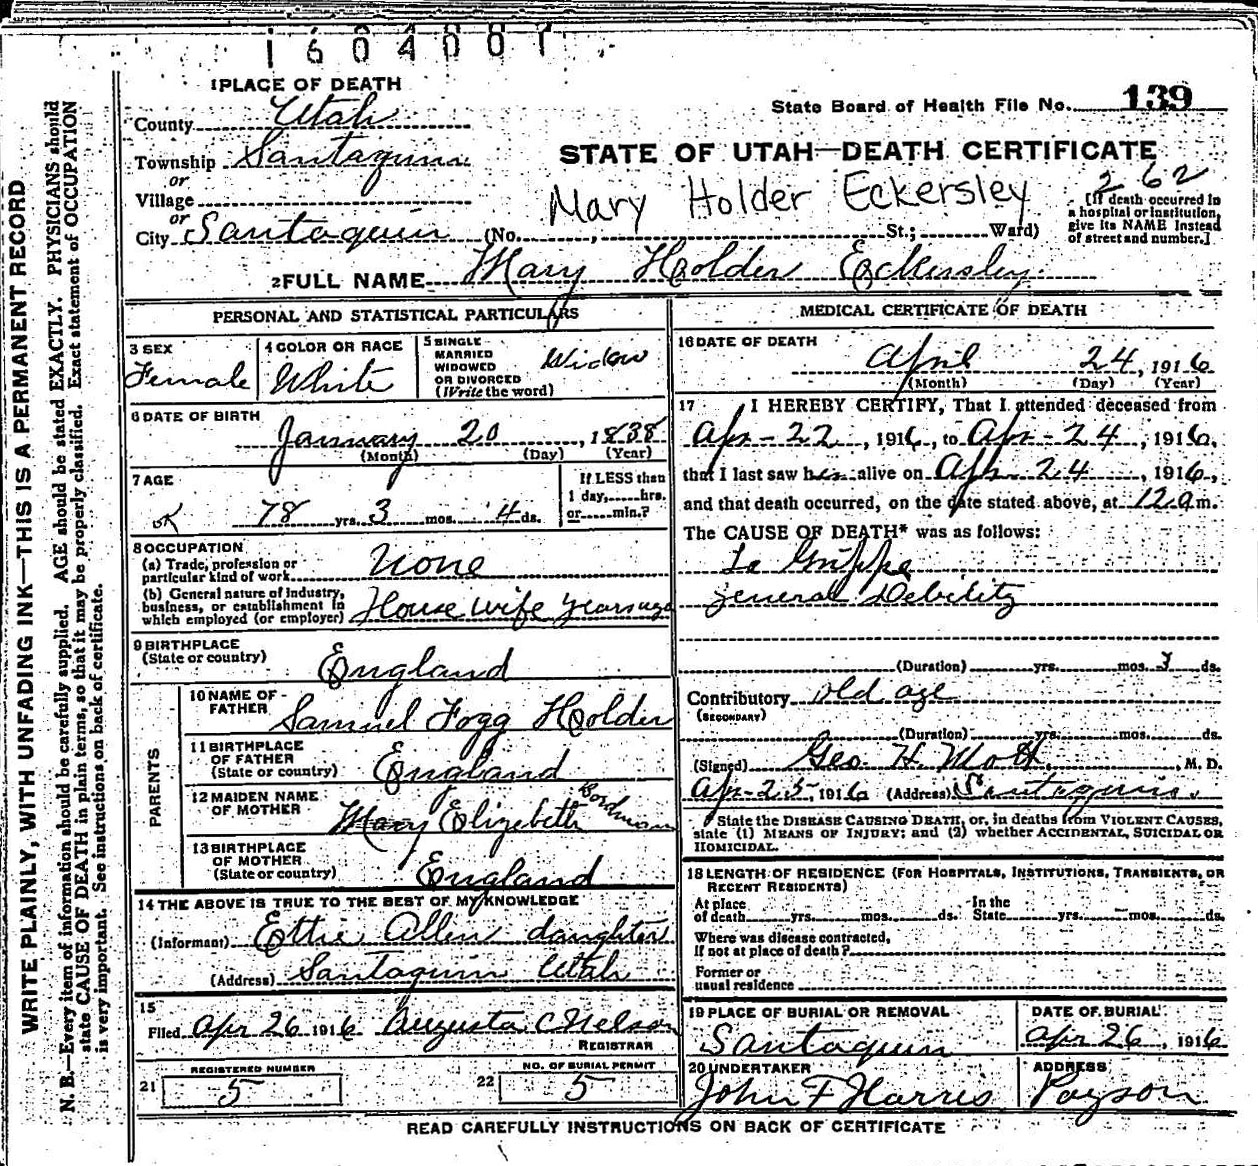 1604007
1 PLACE OF DEATH
State Board of Health File No. 139
County Utah
Township Santaquin
STATE OF UTAH—DEATH CERTIFICATE
or
Village
Mary Holder Eckersley
262
[If death occurred in a hospital or institution, give its NAME instead of street and number.]
or
City Santaquin (No. , St.; Ward)
2 FULL NAME Mary Holder Eckersley
PERSONAL AND STATISTICAL PARTICULARS
3 SEX
Female
4 COLOR OR RACE
White
5 SINGLE
MARRIED
WIDOWED
OR DIVORCED
(Write the word)
Widow
6 DATE OF BIRTH
January 20, 1838
(Month) (Day) (Year)
7 AGE
OK 78 yrs. 3 mos. 4 ds.
If LESS than
1 day, hrs.
or min.?
8 OCCUPATION
(a) Trade, profession or
particular kind of work None
(b) General nature of industry,
business, or establishment in
which employed (or employer) House wife years ago
9 BIRTHPLACE
(State or country)
England
PARENTS
10 NAME OF
FATHER
Samuel Fogg Holder
11 BIRTHPLACE
OF FATHER
(State or country) England
12 MAIDEN NAME
OF MOTHER
Mary Elizebeth Bordman
13 BIRTHPLACE
OF MOTHER
(State or country) England
14 THE ABOVE IS TRUE TO THE BEST OF MY KNOWLEDGE
(Informant) Ettie Allen daughter
(Address) Santaquin Utah
15
Filed Apr 26 1916 Augusta C Nelson
REGISTRAR
21 REGISTERED NUMBER
5
22 NO. OF BURIAL PERMIT
5
MEDICAL CERTIFICATE OF DEATH
16 DATE OF DEATH
April 24, 1916
(Month) (Day) (Year)
17 I HEREBY CERTIFY, That I attended deceased from
Apr-22, 1916, to Apr-24, 1916,
that I last saw her alive on Apr 24, 1916,
and that death occurred, on the date stated above, at 12 a m.
The CAUSE OF DEATH* was as follows:
La Grippe
general Debility
(Duration) yrs. mos. 3 ds.
Contributory old age
(SECONDARY)
(Duration) yrs. mos. ds.
(Signed) Geo. H. Mott, M. D.
Apr-25, 1916 (Address) Santaquin.
State the DISEASE CAUSING DEATH, or, in deaths from VIOLENT CAUSES,
state (1) MEANS OF INJURY; and (2) whether ACCIDENTAL, SUICIDAL OR
HOMICIDAL.
18 LENGTH OF RESIDENCE (FOR HOSPITALS, INSTITUTIONS, TRANSIENTS, OR
RECENT RESIDENTS)
At place
of death yrs. mos. ds.
In the
State yrs. mos. ds.
Where was disease contracted,
If not at place of death?
Former or
usual residence
19 PLACE OF BURIAL OR REMOVAL
Santaquin
DATE OF BURIAL
Apr 26, 1916
20 UNDERTAKER
John F Harris
ADDRESS
Payson
READ CAREFULLY INSTRUCTIONS ON BACK OF CERTIFICATE
WRITE PLAINLY, WITH UNFADING INK—THIS IS A PERMANENT RECORD
N. B.—Every item of information should be carefully supplied. AGE should be stated EXACTLY. PHYSICIANS should
state CAUSE OF DEATH in plain terms, so that it may be properly classified. Exact statement of OCCUPATION
is very important. See instructions on back of certificate.